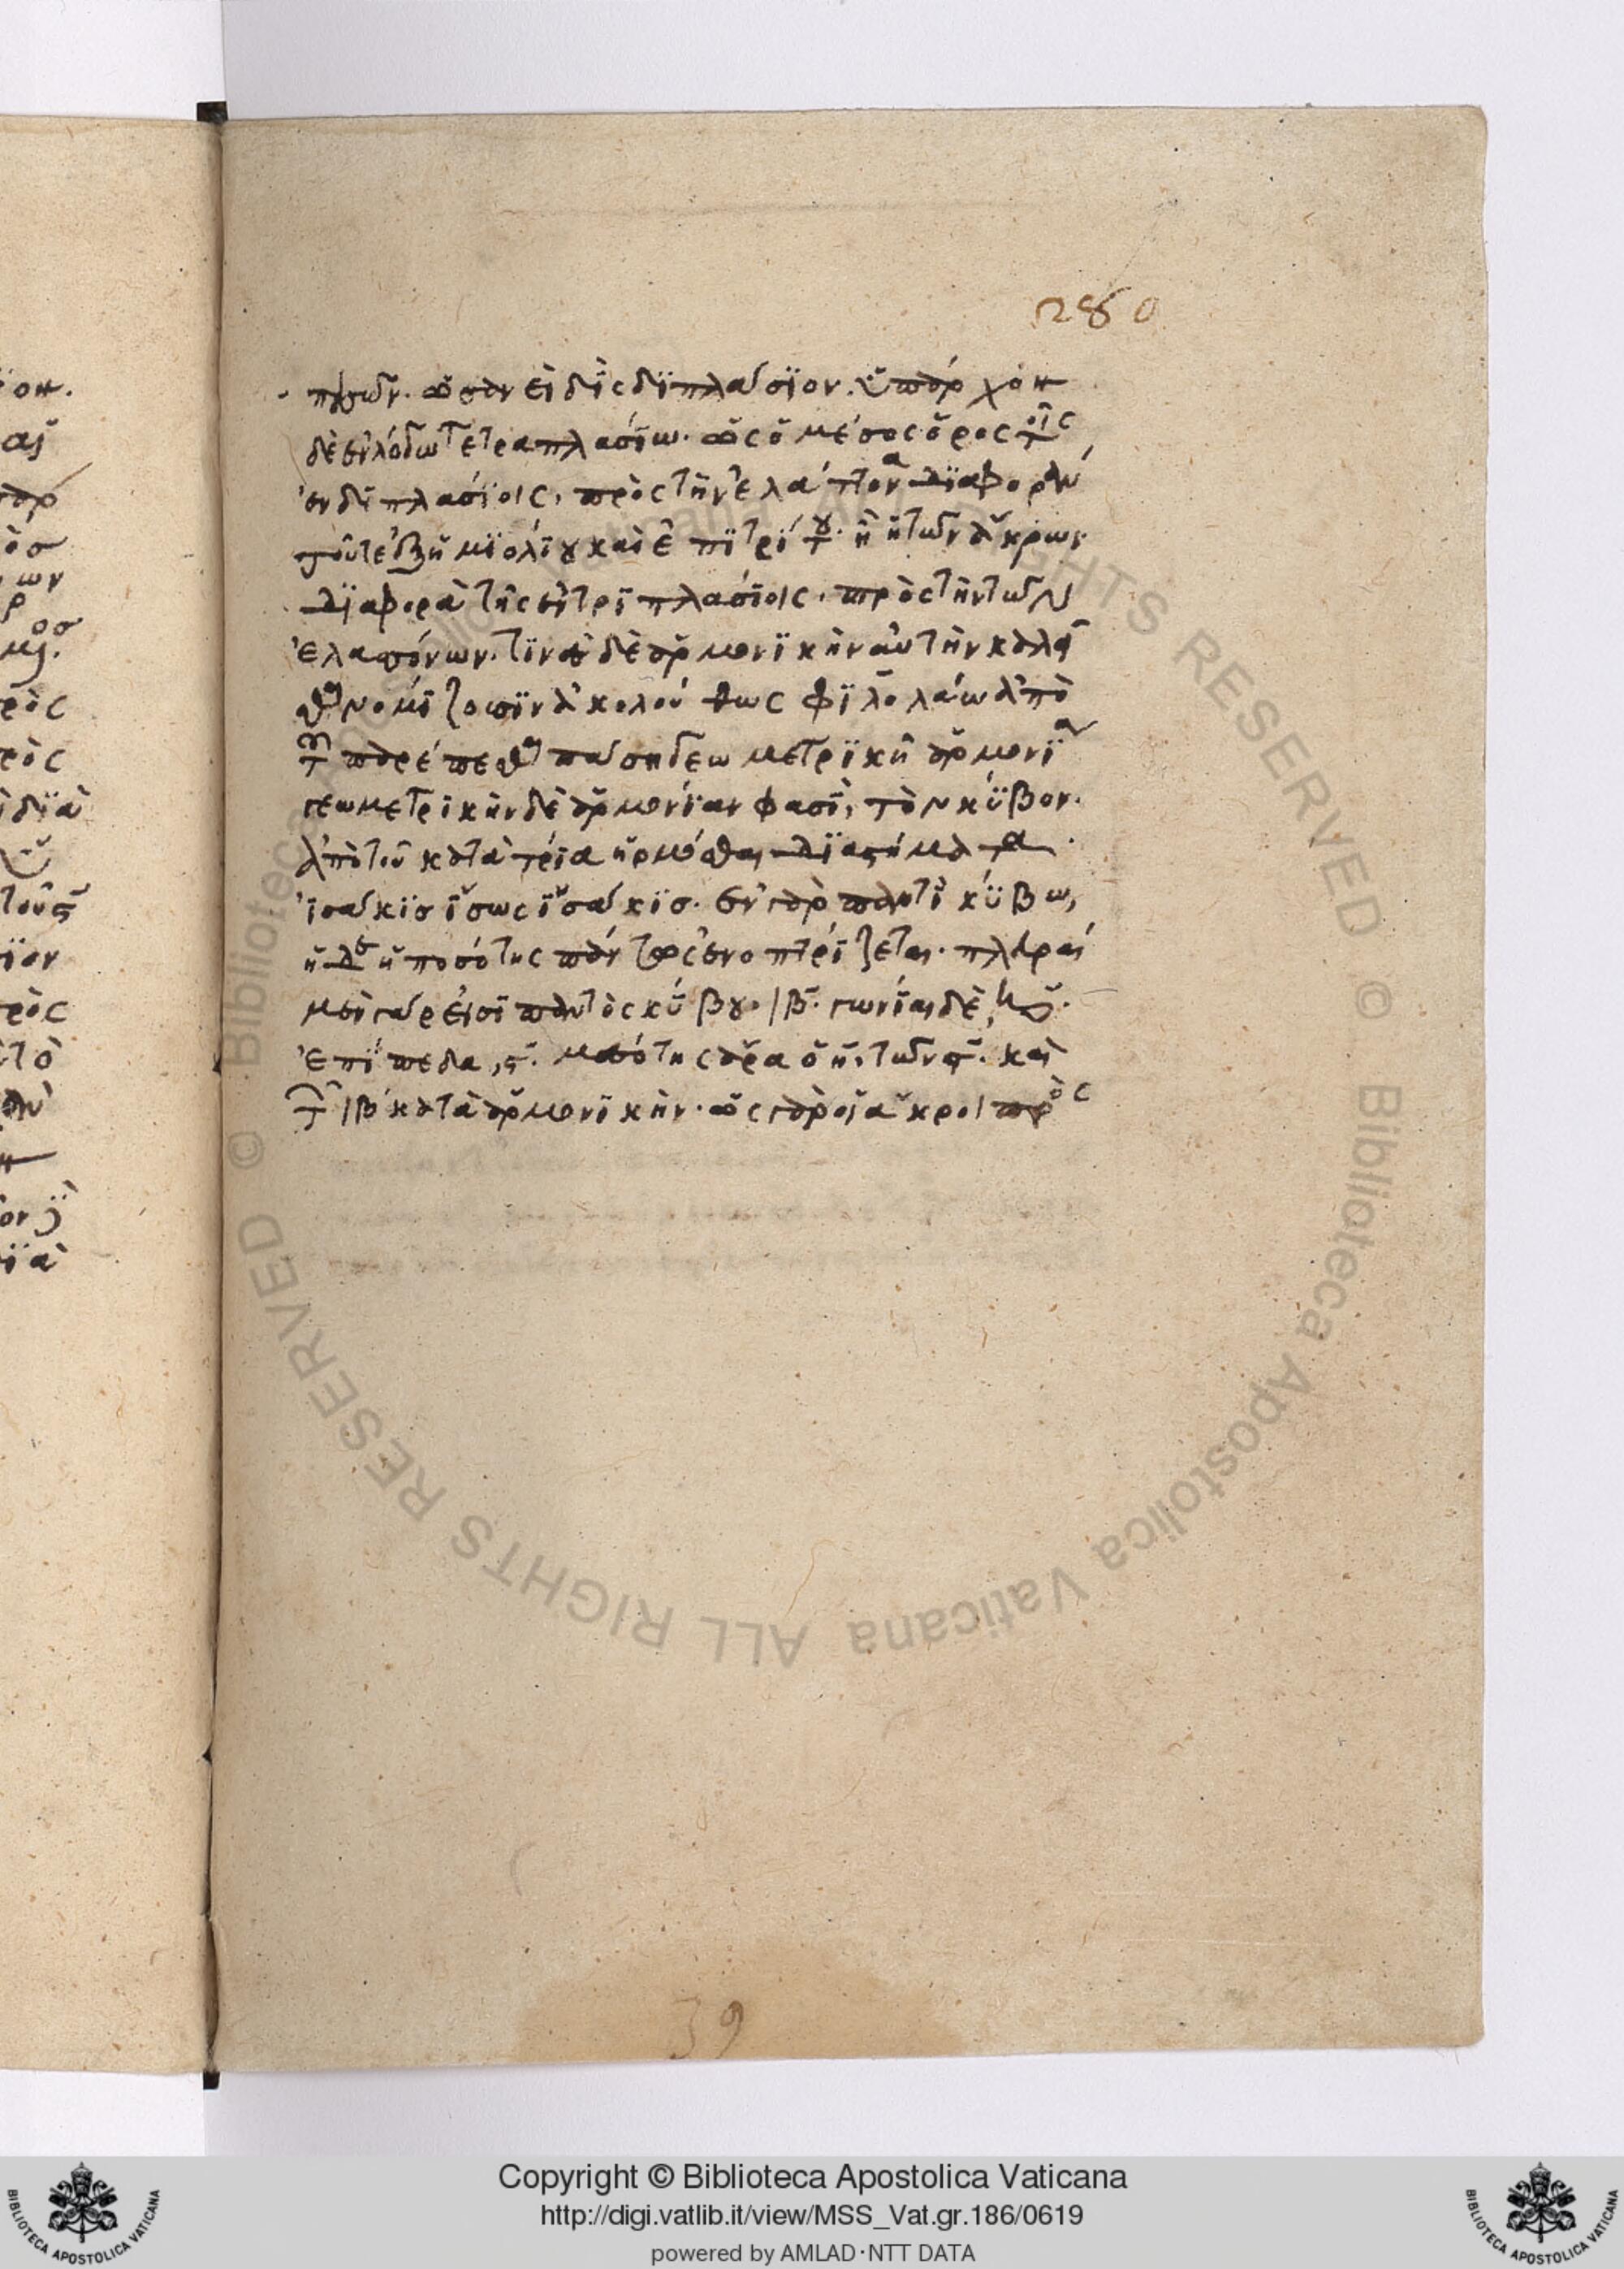 280
πασῶν. ὡσανεὶ δὶς διπλάσιον. ὑπάρχον
δὲ ἐν λόγω τετραπλασίω. ὡς ὁ μέσος ὅρος τοῖς
ἐν διπλασίοις, πρὸς τὴν ἐλάττονα διαφορὰν
τοῦτε ἐξ ἡμιολίου καὶ ἐπιτρίτου. ἢ ἡ τῶν ἄκρων
διαφορὰ τῆς ἐν τριπλασίοις, πρὸς τὴν τῶν
ἐλασσόνων. τινὲς δὲ ἁρμονικὴν αὐτὴν καλεῖ
σθαι νομίζουσιν ἀκολούθως φιλολάω ἀπὸ
τοῦ παρέπεσθαι πάση γεωμετρικῆ ἁρμονία
γεωμετρικὴν δὲ ἁρμονίαν φασὶ, τὸν κύβον.
ἀπὸ τοῦ κατὰ τρία ἡρμόσθαι διαστήματα.
ἰσάκις ἴσως ἰσάκις. ἐν γὰρ παντὶ κύβω,
ἥδε ἡ ποσότης πάντως ἐνοπτρίζεται. πλευραὶ
μὲν γάρ εἰσι παντὸς κύβου. ιβ. γωνίαι δὲ, η.
ἐπίπεδα, ς. μεσότης ἄρα ὁ η, τῶν ς. καὶ
τῶν ιβ κατὰ ἁρμονικήν. ὡς γὰρ οἱ ἄκροι πρὸς
39
Biblioteca Apostolica Vaticana ALL RIGHTS RESERVED ©
Copyright © Biblioteca Apostolica Vaticana
http://digi.vatlib.it/view/MSS_Vat.gr.186/0619
powered by AMLAD·NTT DATA
BIBLIOTECA APOSTOLICA VATICANA
BIBLIOTECA APOSTOLICA VATICANA